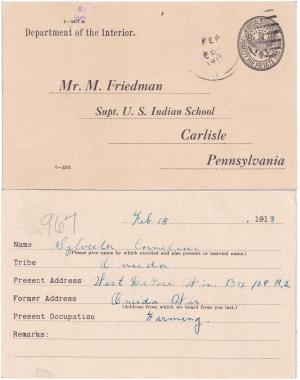 Department of the Interior.
FEB
Mr. M. Friedman
Supt. U. S. Indian School
Carlisle
Pennsylvania
967
Feb 18, 1913
Name Sylvester Cornelius
(Please give name by which enrolled and also present or married name.)
Tribe Oneida
Present Address West DePere Wis. Bx 109 R.2
Former Address Oneida Wis
(Address from which we heard from you last.)
Present Occupation Farming.
Remarks: